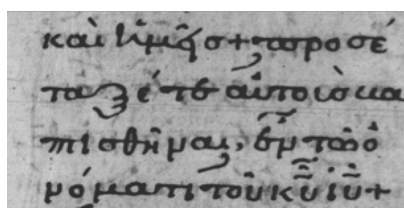 καὶ ἡμεῖσ + προσέ
ταξέ τε αὐτοὺσ βα
πτισθῆναι, ἐν τῶ ὀ
νόματι τοῦ κ̅υ̅ ἰ̅υ̅ +